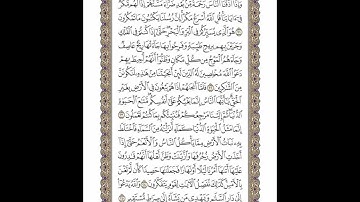 وَإِذَآ أَذَقْنَا ٱلنَّاسَ رَحْمَةً مِّنۢ بَعْدِ ضَرَّآءَ مَسَّتْهُمْ إِذَا لَهُم مَّكْرٌ
فِىٓ ءَايَاتِنَا قُلِ ٱللَّهُ أَسْرَعُ مَكْرًا إِنَّ رُسُلَنَا يَكْتُبُونَ مَا تَمْكُرُونَ ٢١
هُوَ ٱلَّذِى يُسَيِّرُكُمْ فِى ٱلْبَرِّ وَٱلْبَحْرِ حَتَّىٰٓ إِذَا كُنتُمْ فِى ٱلْفُلْكِ
وَجَرَيْنَ بِهِم بِرِيحٍ طَيِّبَةٍ وَفَرِحُوا۟ بِهَا جَآءَتْهَا رِيحٌ عَاصِفٌ
وَجَآءَهُمُ ٱلْمَوْجُ مِن كُلِّ مَكَانٍ وَظَنُّوٓا۟ أَنَّهُمْ أُحِيطَ بِهِمْ
دَعَوُا۟ ٱللَّهَ مُخْلِصِينَ لَهُ ٱلدِّينَ لَئِنْ أَنجَيْتَنَا مِنْ هَٰذِهِۦ لَنَكُونَنَّ
مِنَ ٱلشَّٰكِرِينَ ٢٢ فَلَمَّآ أَنجَىٰهُمْ إِذَا هُمْ يَبْغُونَ فِى ٱلْأَرْضِ بِغَيْرِ
ٱلْحَقِّ يَٰٓأَيُّهَا ٱلنَّاسُ إِنَّمَا بَغْيُكُمْ عَلَىٰٓ أَنفُسِكُم مَّتَٰعَ ٱلْحَيَوٰةِ
ٱلدُّنْيَا ثُمَّ إِلَيْنَا مَرْجِعُكُمْ فَنُنَبِّئُكُم بِمَا كُنتُمْ تَعْمَلُونَ ٢٣
إِنَّمَا مَثَلُ ٱلْحَيَوٰةِ ٱلدُّنْيَا كَمَآءٍ أَنزَلْنَٰهُ مِنَ ٱلسَّمَآءِ فَٱخْتَلَطَ
بِهِۦ نَبَاتُ ٱلْأَرْضِ مِمَّا يَأْكُلُ ٱلنَّاسُ وَٱلْأَنْعَٰمُ حَتَّىٰٓ إِذَآ
أَخَذَتِ ٱلْأَرْضُ زُخْرُفَهَا وَٱزَّيَّنَتْ وَظَنَّ أَهْلُهَآ أَنَّهُمْ قَٰدِرُونَ
عَلَيْهَآ أَتَىٰهَآ أَمْرُنَا لَيْلًا أَوْ نَهَارًا فَجَعَلْنَٰهَا حَصِيدًا كَأَن لَّمْ تَغْنَ
بِٱلْأَمْسِ كَذَٰلِكَ نُفَصِّلُ ٱلْءَايَٰتِ لِقَوْمٍ يَتَفَكَّرُونَ ٢٤ وَٱللَّهُ يَدْعُوٓا۟
إِلَىٰ دَارِ ٱلسَّلَٰمِ وَيَهْدِى مَن يَشَآءُ إِلَىٰ صِرَٰطٍ مُّسْتَقِيمٍ ٢٥